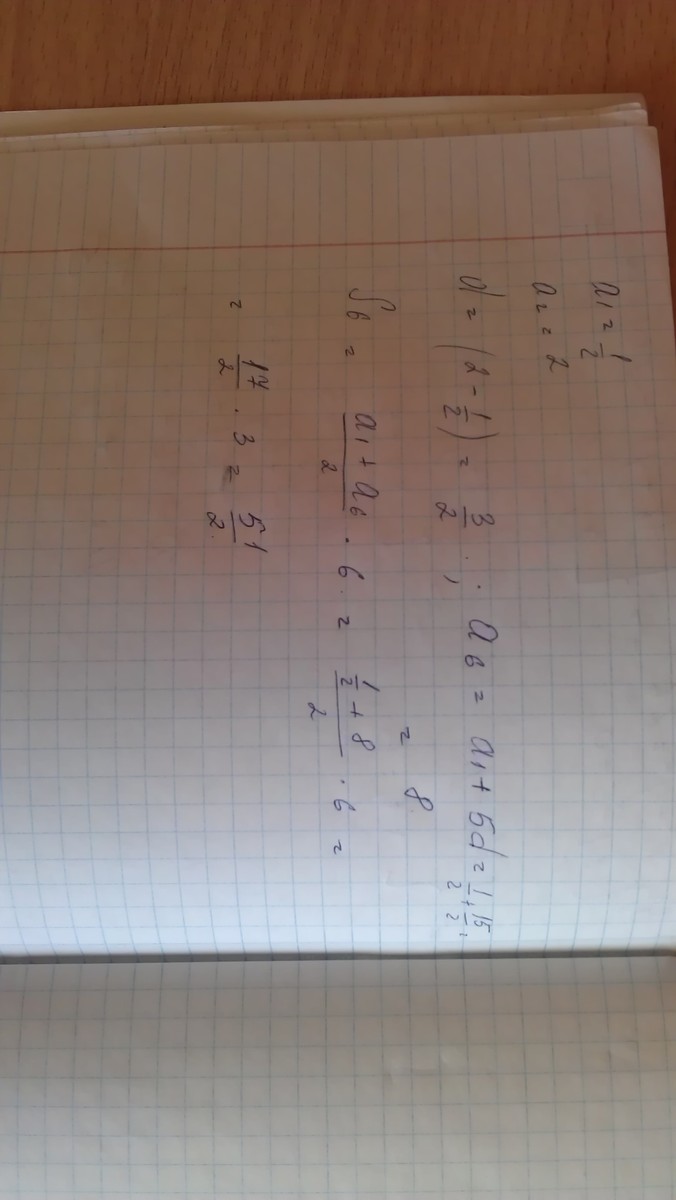 a₁ = 1/2
a₂ = 2
d = (2 - 1/2) = 3/2 ; a₆ = a₁ + 5d = 1/2 + 15/2 =
= 8
S₆ = (a₁ + a₆)/2 · 6 = (1/2 + 8)/2 · 6 =
= 17/2 · 3 = 51/2